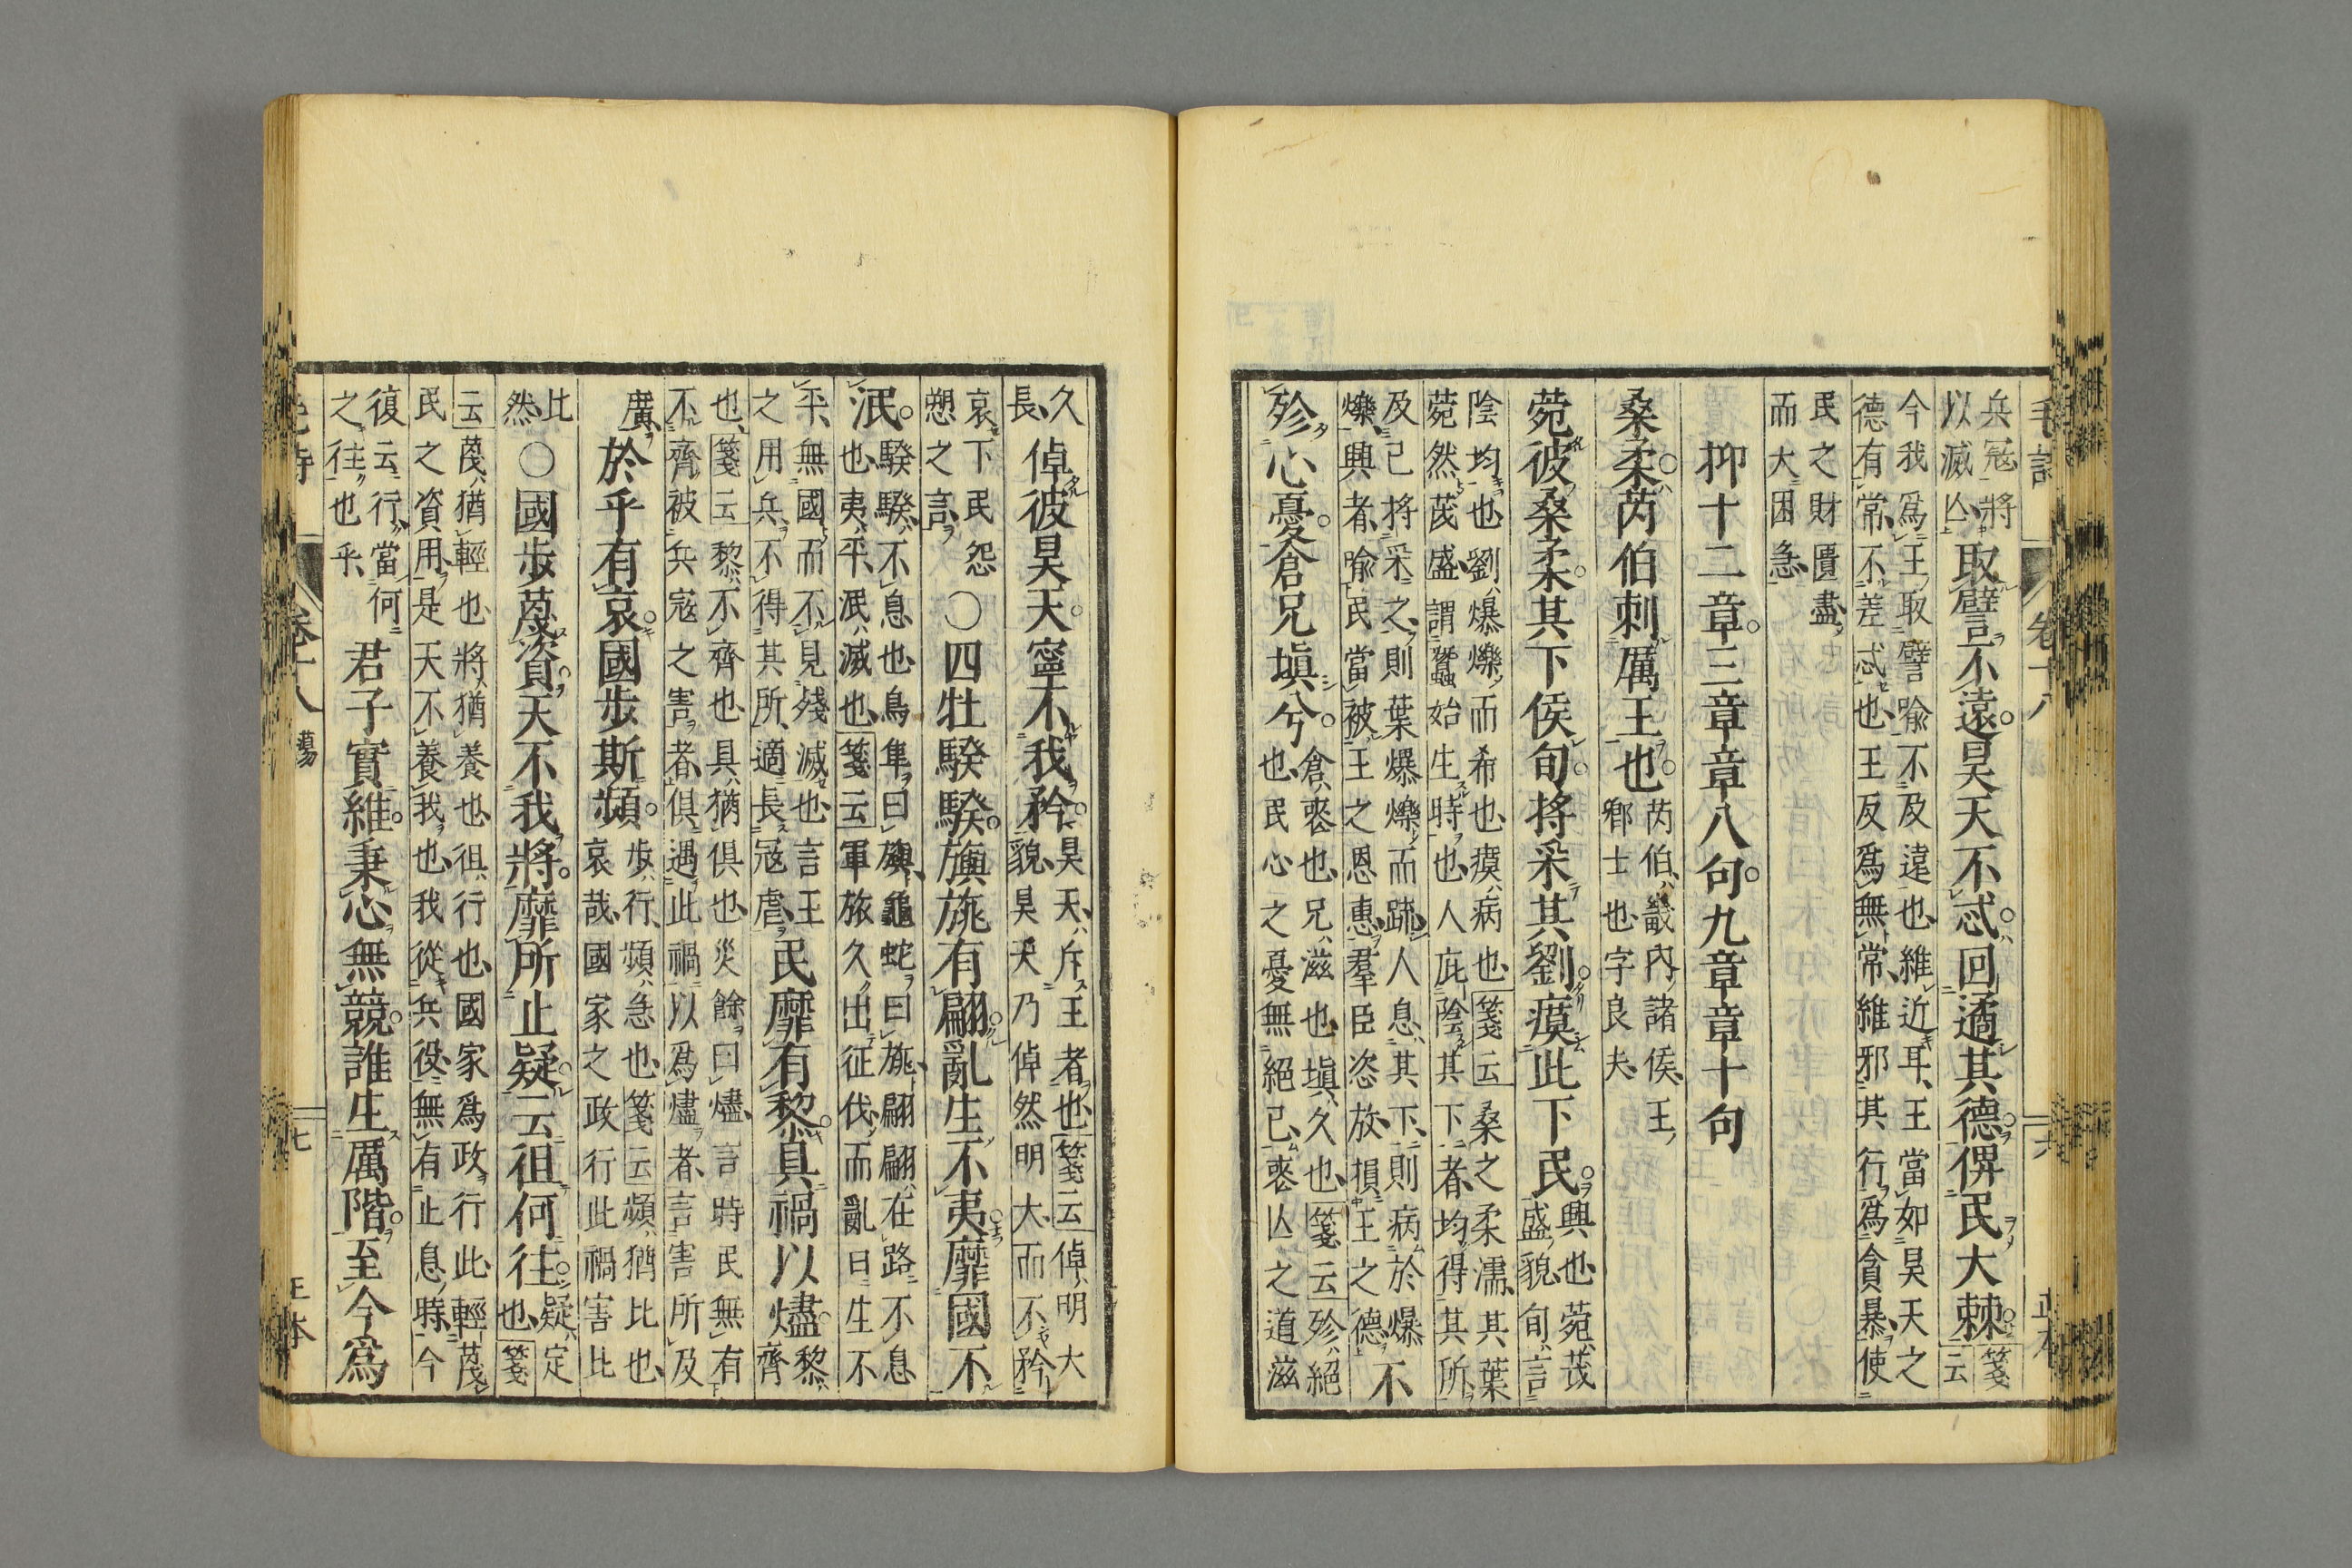 毛詩 卷十八 六 正本
兵寇將
以滅亾
取譬不遠昊天不忒回遹其德俾民大棘
箋
云
今我爲王取譬喻不及遠也維近耳王當如昊天之
德有常不差忒也王反爲無常維邪其行爲貪暴使
民之財匱盡
而大困急
抑十二章三章章八句九章章十句
桑柔芮伯刺厲王也
芮伯畿内諸侯王
卿士也字良夫
菀彼桑柔其下侯旬捋采其劉瘼此下民
興也菀茂
盛貌旬言
陰均也劉爆爍而希也瘼病也箋云桑之柔濡其葉
菀然茂盛謂蠶始生時也人庇陰其下者均得其所
及已捋采之則葉爆爍而疏人息其下則病於爆
爍興者喻民當被王之恩惠羣臣恣放損王之德
不
殄心憂倉兄塡兮
倉喪也兄滋也塡久也箋云殄絕
也民心之憂無絕已喪亾之道滋
久
長
倬彼昊天寧不我矜
昊天斥王者也箋云倬明大
貌昊天乃倬然明大而不矜
哀下民怨
愬之言
○四牡騤騤旟旐有翩亂生不夷靡國不
泯
騤騤不息也鳥隼曰旟龜蛇曰旐翩翩在路不息
也夷平泯滅也箋云軍旅久出征伐而亂日生不
平無國而不見殘滅也言王
之用兵不得其所適長寇虐
民靡有黎具禍以燼
黎
齊
也箋云黎不齊也具猶俱也災餘曰燼言時民無有
不齊被兵寇之害者俱遇此禍以爲燼者言害所及
廣
於乎有哀國步斯頻
步行頻急也箋云頻猶比也
哀哉國家之政行此禍害比
比
然
○國步蔑資天不我將靡所止疑云徂何往
疑定
也箋
云蔑猶輕也將猶養也徂行也國家爲政行此輕蔑
民之資用是天不養我也我從兵役無有止息時今
復云行當何
之往也乎
君子實維秉心無競誰生厲階至今爲
毛詩 卷十八 蕩 七 正本